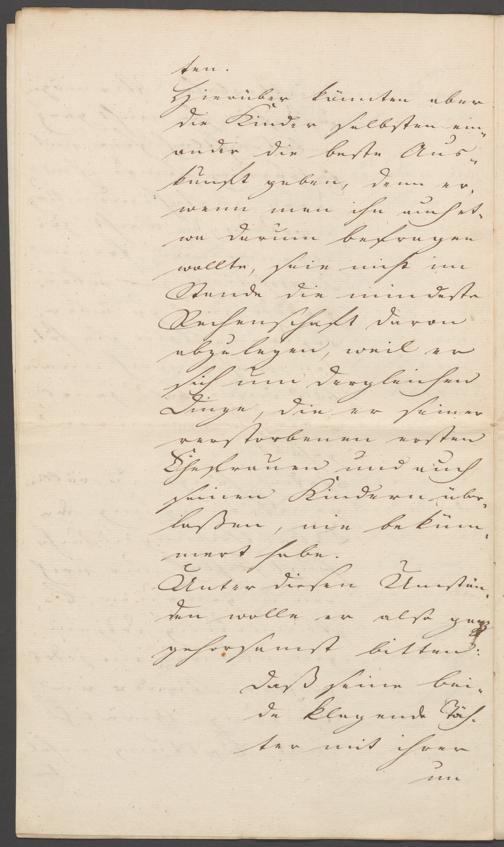 ten.
Hierüber könnten aber
die Kinder selbsten ein-
ander die beste Aus-
kunft geben, denn er,
wenn man ihn auch et-
wa darum befragen
wollte, seie nicht im
Stande die mindeste
Rechenschaft davon
abzulegen, weil er
sich um dergleichen
Dinge, die er seiner
verstorbenen ersten
Ehefrauen und auch
seinen Kindern über-
laßen, nie beküm-
mert habe.
Unter diesen Umstän-
den wolle er also ganz
gehorsamst bitten:
Daß seine bei-
de klagende Töch-
ter mit ihrer
un